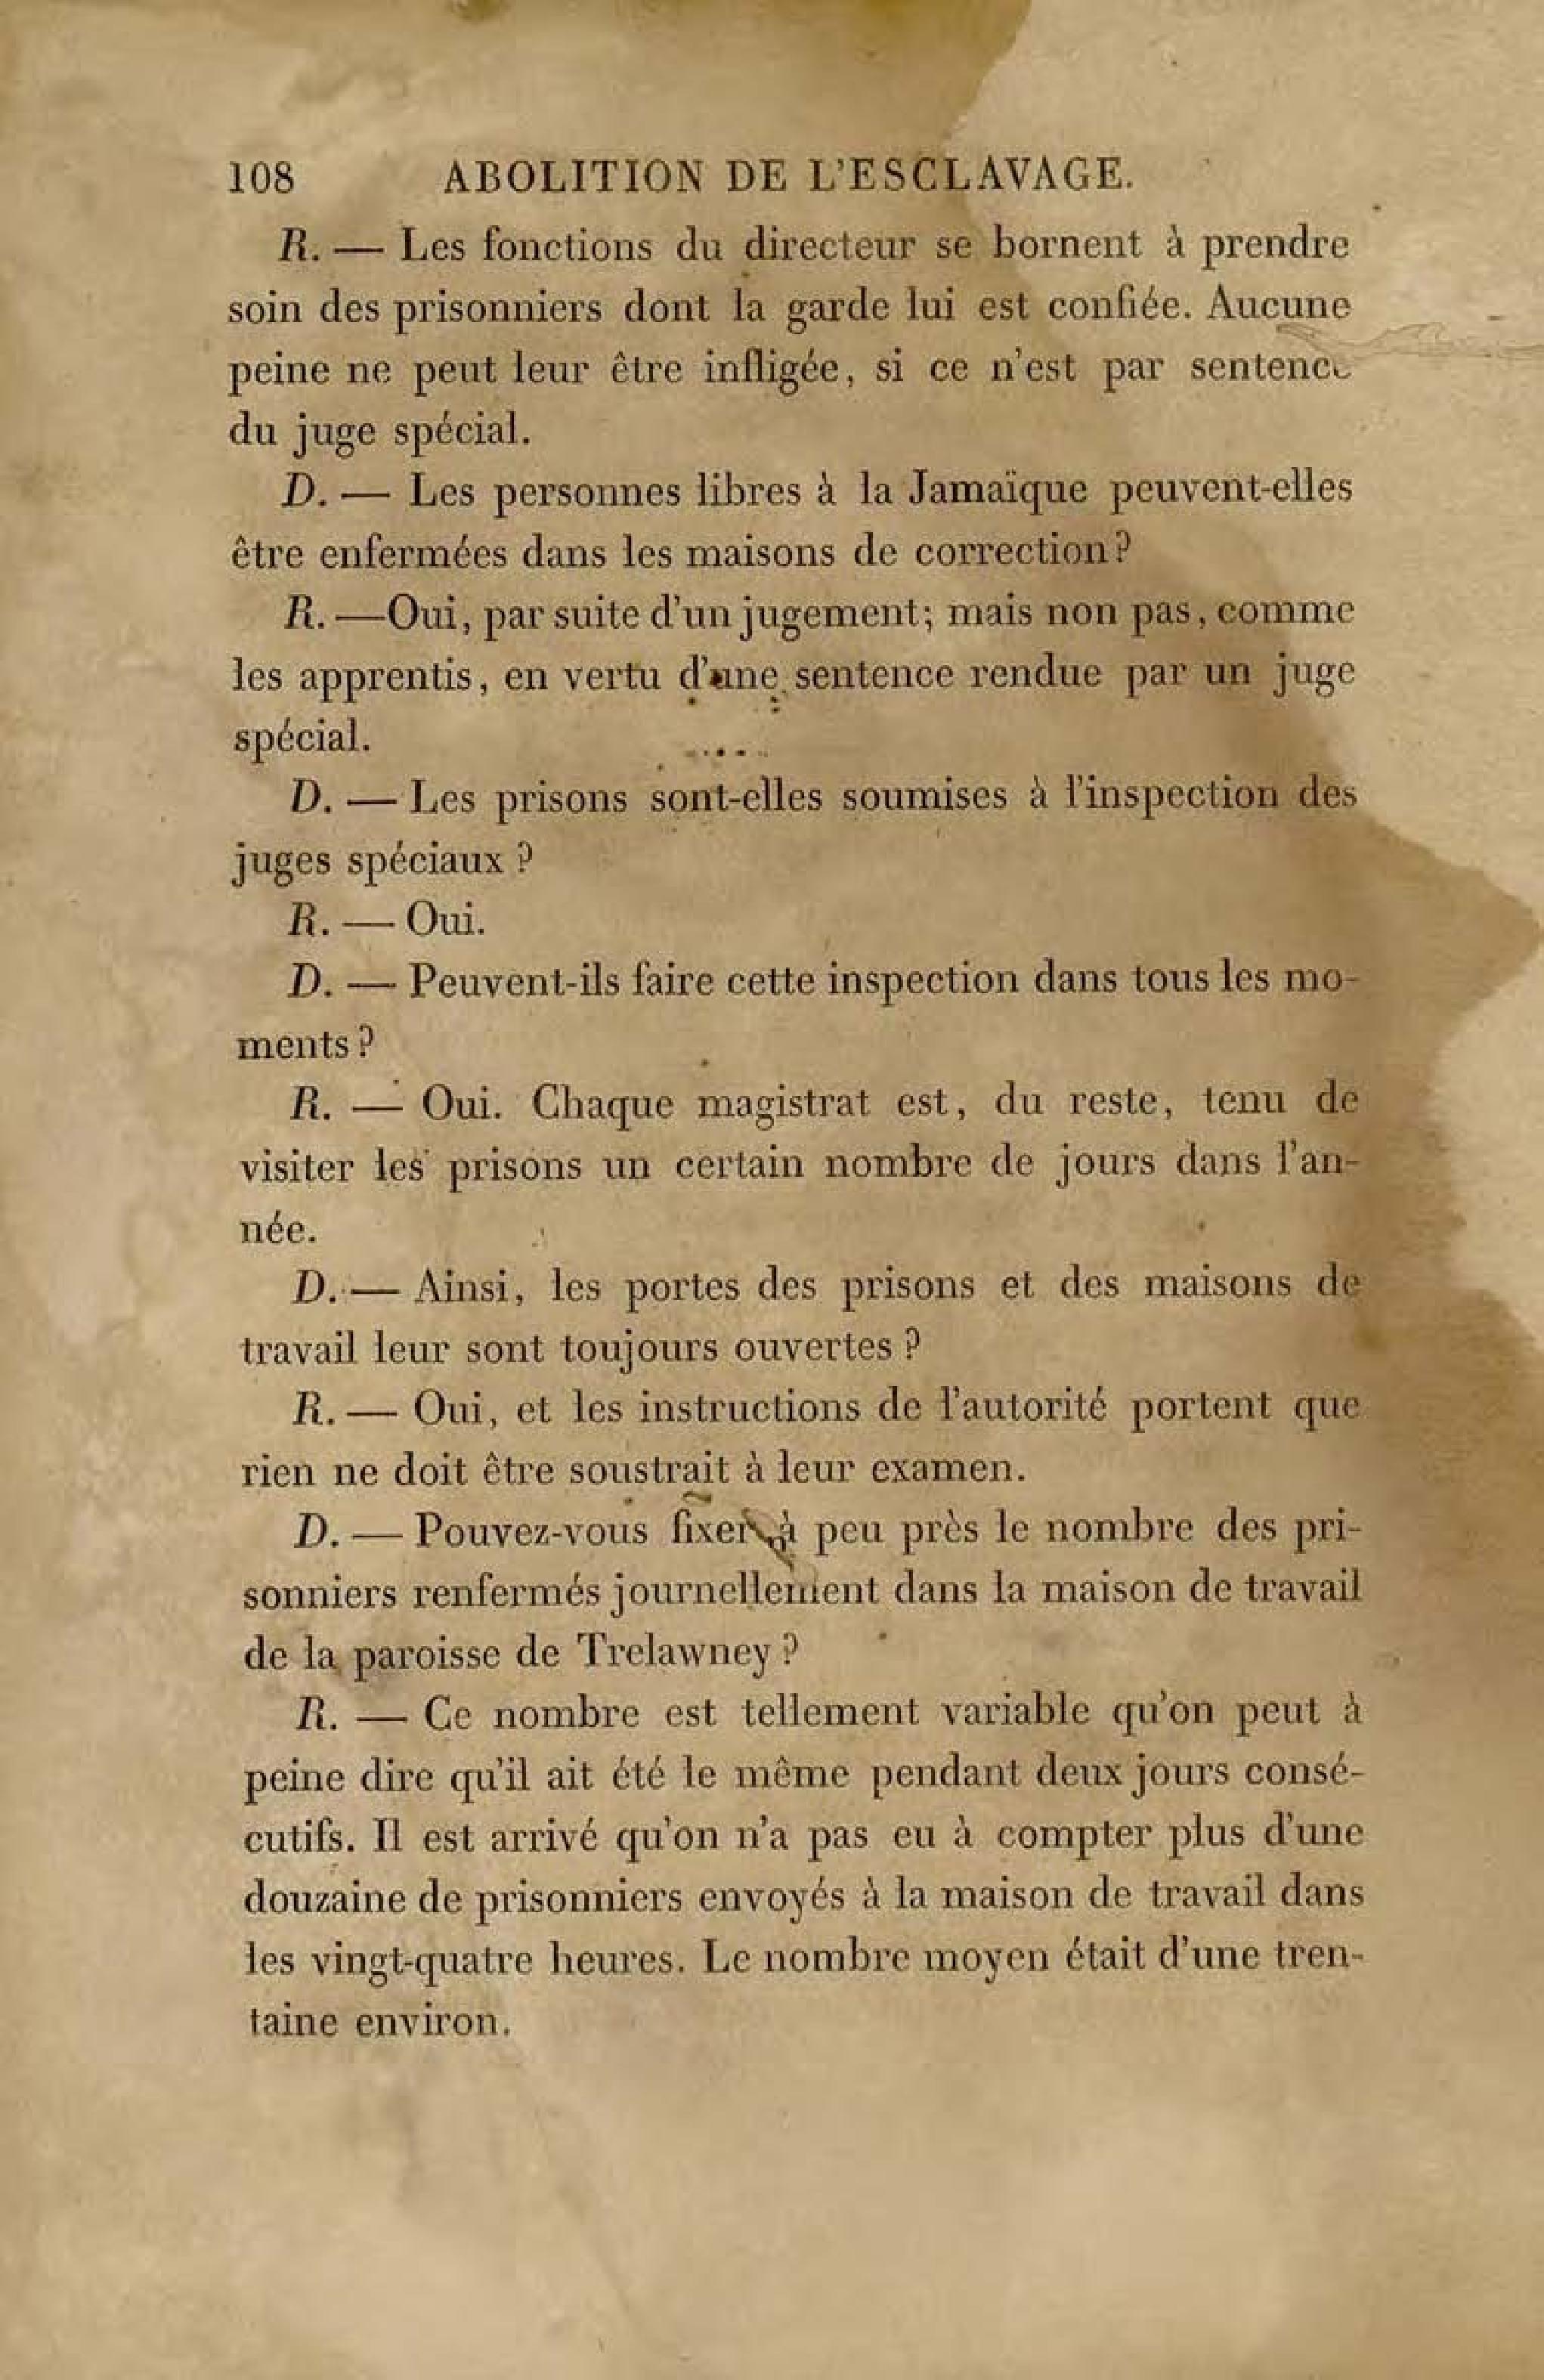 108 ABOLITION DE L'ESCLAVAGE.
R. — Les fonctions du directeur se bornent à prendre
soin des prisonniers dont la garde lui est confiée. Aucune
peine ne peut leur être infligée, si ce n'est par sentence
du juge spécial.
D. — Les personnes libres à la Jamaïque peuvent-elles
être enfermées dans les maisons de correction?
R. — Oui, par suite d'un jugement; mais non pas, comme
les apprentis, en vertu d'une sentence rendue par un juge
spécial.
D. — Les prisons sont-elles soumises à l'inspection des
juges spéciaux ?
R. — Oui.
D. — Peuvent-ils faire cette inspection dans tous les mo-
ments ?
R. — Oui. Chaque magistrat est, du reste, tenu de
visiter les prisons un certain nombre de jours dans l'an-
née.
D. — Ainsi, les portes des prisons et des maisons de
travail leur sont toujours ouvertes ?
R. — Oui, et les instructions de l'autorité portent que
rien ne doit être soustrait à leur examen.
D. — Pouvez-vous fixer à peu près le nombre des pri-
sonniers renfermés journellement dans la maison de travail
de la paroisse de Trelawney ?
R. — Ce nombre est tellement variable qu'on peut à
peine dire qu'il ait été le même pendant deux jours consé-
cutifs. Il est arrivé qu'on n'a pas eu à compter plus d'une
douzaine de prisonniers envoyés à la maison de travail dans
les vingt-quatre heures. Le nombre moyen était d'une tren-
taine environ.